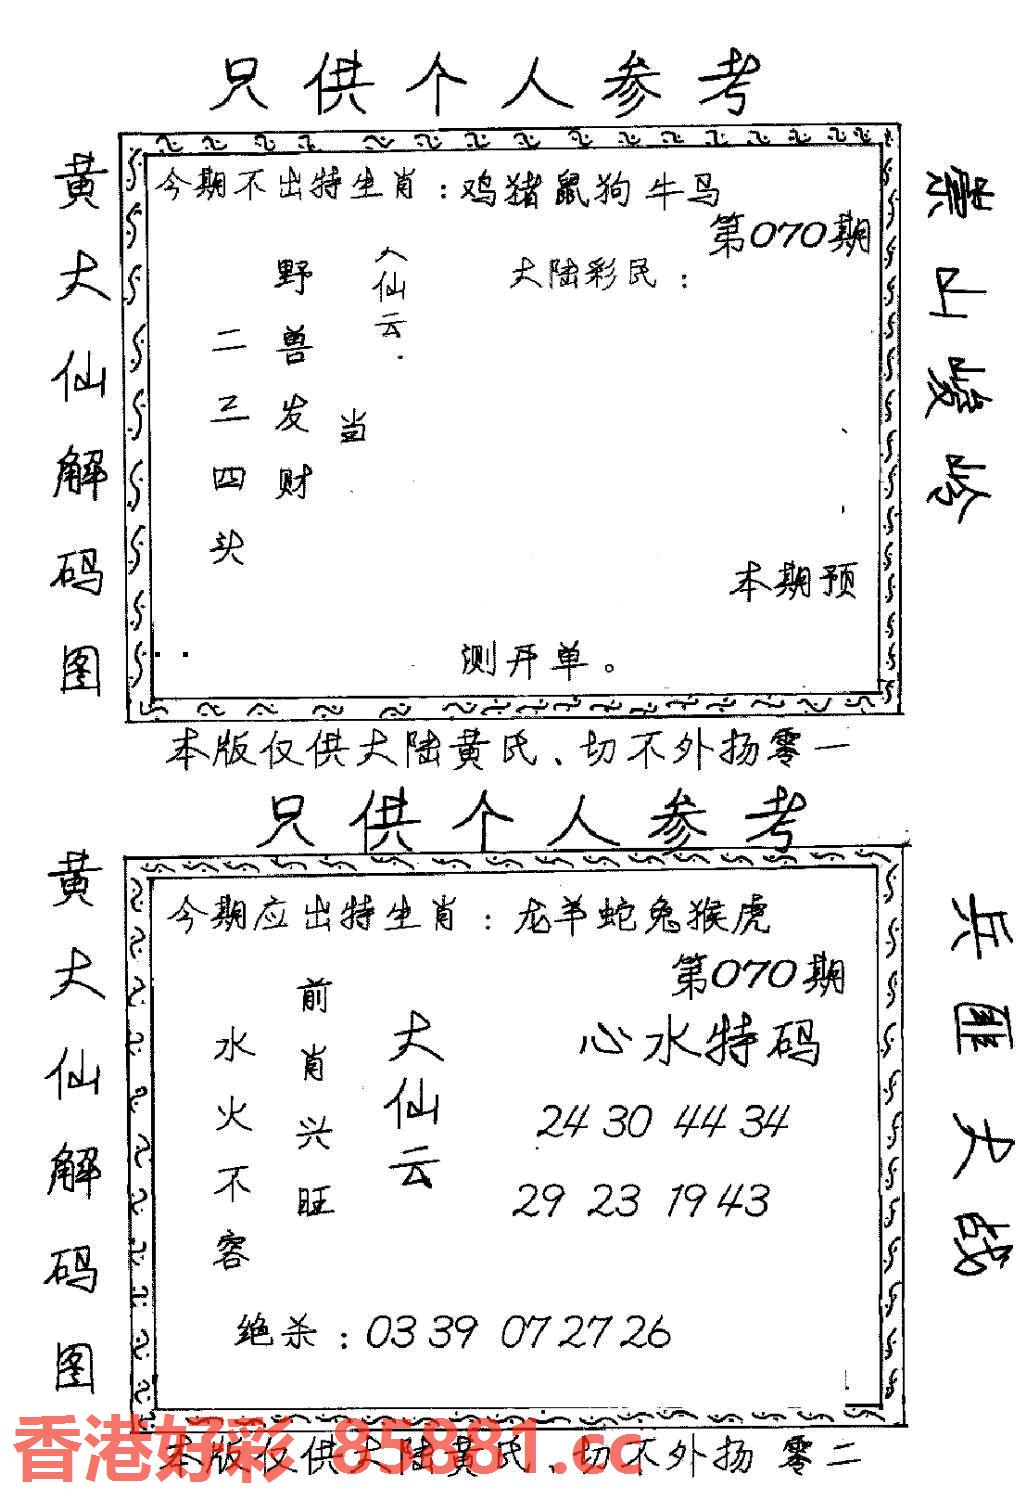 只供个人参考
黄大仙解码图
今期不出特生肖：鸡猪鼠狗牛马
第070期
大陆彩民：
仙云
野兽发财
二三四头
当
本期预
测开单。
本版仅供大陆黄氏、切不外扬零一
只供个人参考
黄大仙解码图
兵匪大战
今期应出特生肖：龙羊蛇兔猴虎
第070期
心水特码
大仙云
前肖兴旺
水火不容
24 30 44 34
29 23 19 43
绝杀：03 39 07 27 26
本版仅供大陆黄氏、切不外扬 零二
香港好彩 85881.cc